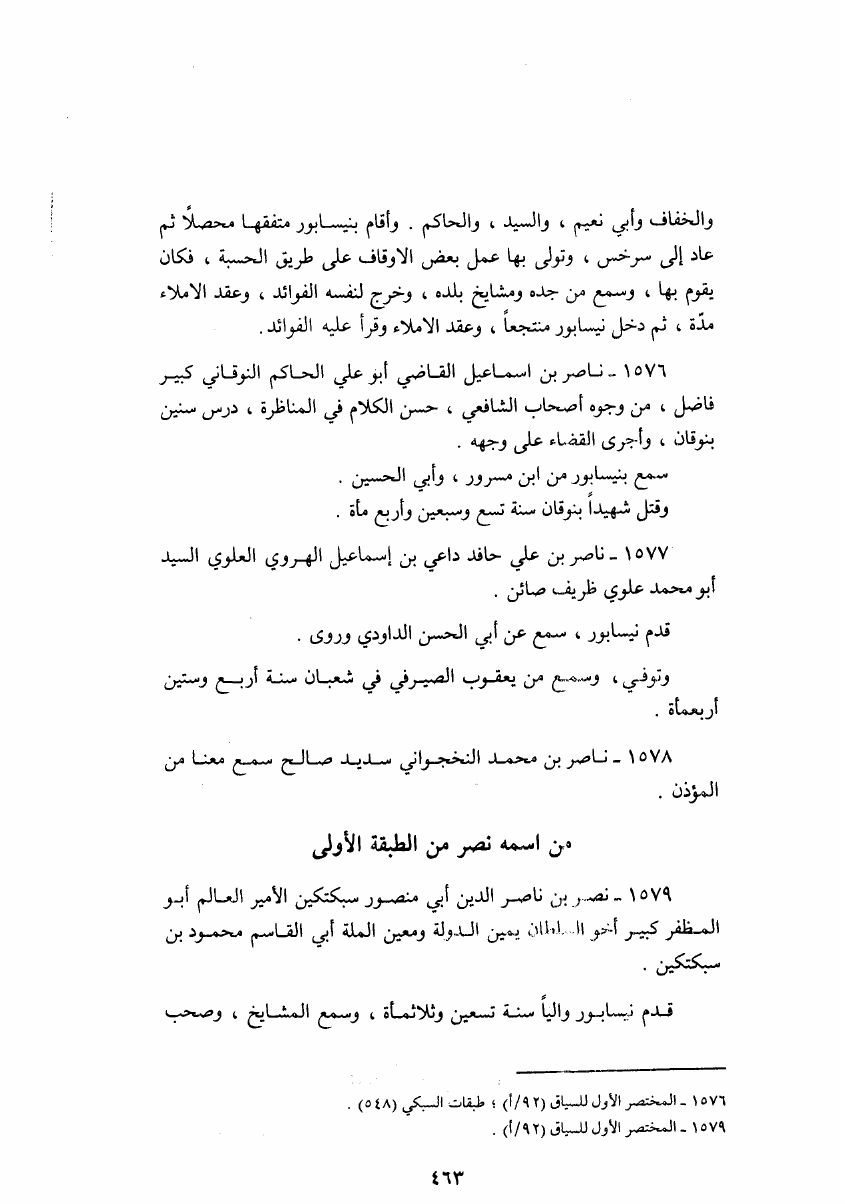 والخفاف وأبي نعيم ، والسيد ، والحاكم . وأقام بنيسابور متفقها محصلاً ثم
عاد إلى سرخس ، وتولى بها عمل بعض الاوقاف على طريق الحسبة ، فكان
يقوم بها ، وسمع من جده ومشايخ بلده ، وخرج لنفسه الفوائد ، وعقد الاملاء
مدّة ، ثم دخل نيسابور منتجعاً ، وعقد الاملاء وقرأ عليه الفوائد .
١٥٧٦ ـ ناصر بن اسماعيل القاضي أبو علي الحاكم النوقاني كبير
فاضل ، من وجوه أصحاب الشافعي ، حسن الكلام في المناظرة ، درس سنين
بنوقان ، وأجرى القضاء على وجهه .
سمع بنيسابور من ابن مسرور ، وأبي الحسين .
وقتل شهيداً بنوقان سنة تسع وسبعين وأربع مأة .
١٥٧٧ ـ ناصر بن علي حافد داعي بن إسماعيل الهروي العلوي السيد
أبو محمد علوي ظريف صائن .
قدم نيسابور ، سمع عن أبي الحسن الداودي وروى .
وتوفي ، وسمع من يعقوب الصيرفي في شعبان سنة أربع وستين
أربعمأة .
١٥٧٨ ـ ناصر بن محمد النخجواني سديد صالح سمع معنا من
المؤذن .
من اسمه نصر من الطبقة الأولى
١٥٧٩ ـ نصر بن ناصر الدين أبي منصور سبكتكين الأمير العالم أبو
المظفر كبير أخو السلطان يمين الدولة ومعين الملة أبي القاسم محمود بن
سبكتكين .
قدم نيسابور والياً سنة تسعين وثلاثمأة ، وسمع المشايخ ، وصحب
١٥٧٦ ـ المختصر الأول للسياق (٩٢/أ) ؛ طبقات السبكي (٥٤٨) .
١٥٧٩ ـ المختصر الأول للسياق (٩٢/أ) .
٤٦٣